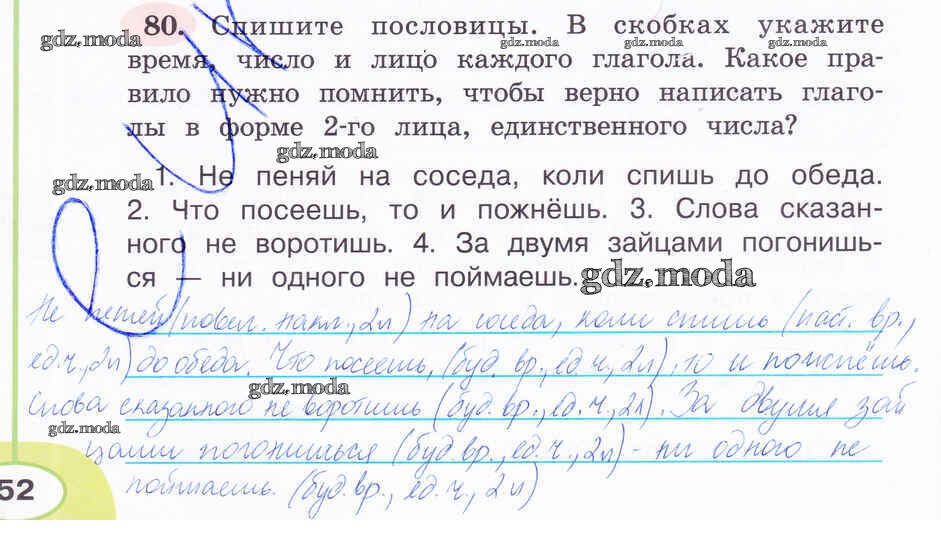 80. Спишите пословицы. В скобках укажите
gdz.moda gdz.moda gdz.moda gdz.moda
время, число и лицо каждого глагола. Какое пра-
вило нужно помнить, чтобы верно написать глаго-
лы в форме 2-го лица, единственного числа?
gdz.moda
gdz.moda
1. Не пеняй на соседа, коли спишь до обеда.
2. Что посеешь, то и пожнёшь. 3. Слова сказан-
ного не воротишь. 4. За двумя зайцами погонишь-
ся — ни одного не поймаешь.
gdz.moda
Не пеняй (повел. накл., 2л) на соседа, коли спишь (наст. вр.,
ед.ч., 2л) до обеда. Что посеешь, (буд. вр., ед. ч., 2л), то и пожнёшь.
gdz.moda
Слова сказанного не воротишь (буд. вр., ед. ч., 2л). За двумя зай
gdz.moda
цами погонишься (буд. вр., ед. ч., 2л) - ни одного не
52
поймаешь. (буд. вр., ед. ч., 2л)